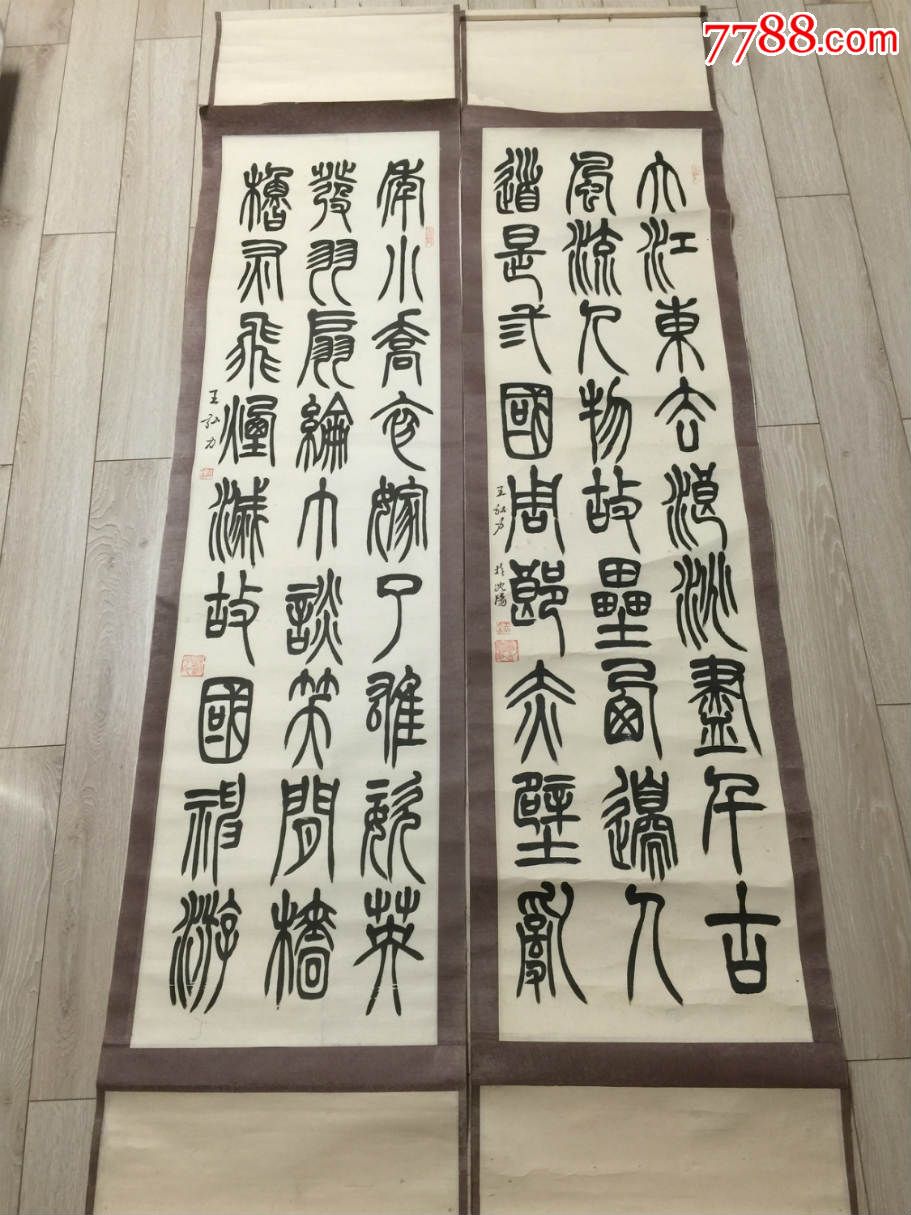 7788.com
大江東去浪淘盡千古
風流人物故壘西邊人
道是三國周郎赤壁亂
王弘力 於沈陽
年小喬初嫁了雄姿英
發羽扇綸巾談笑間檣
櫓灰飛煙滅故國神游
王弘力